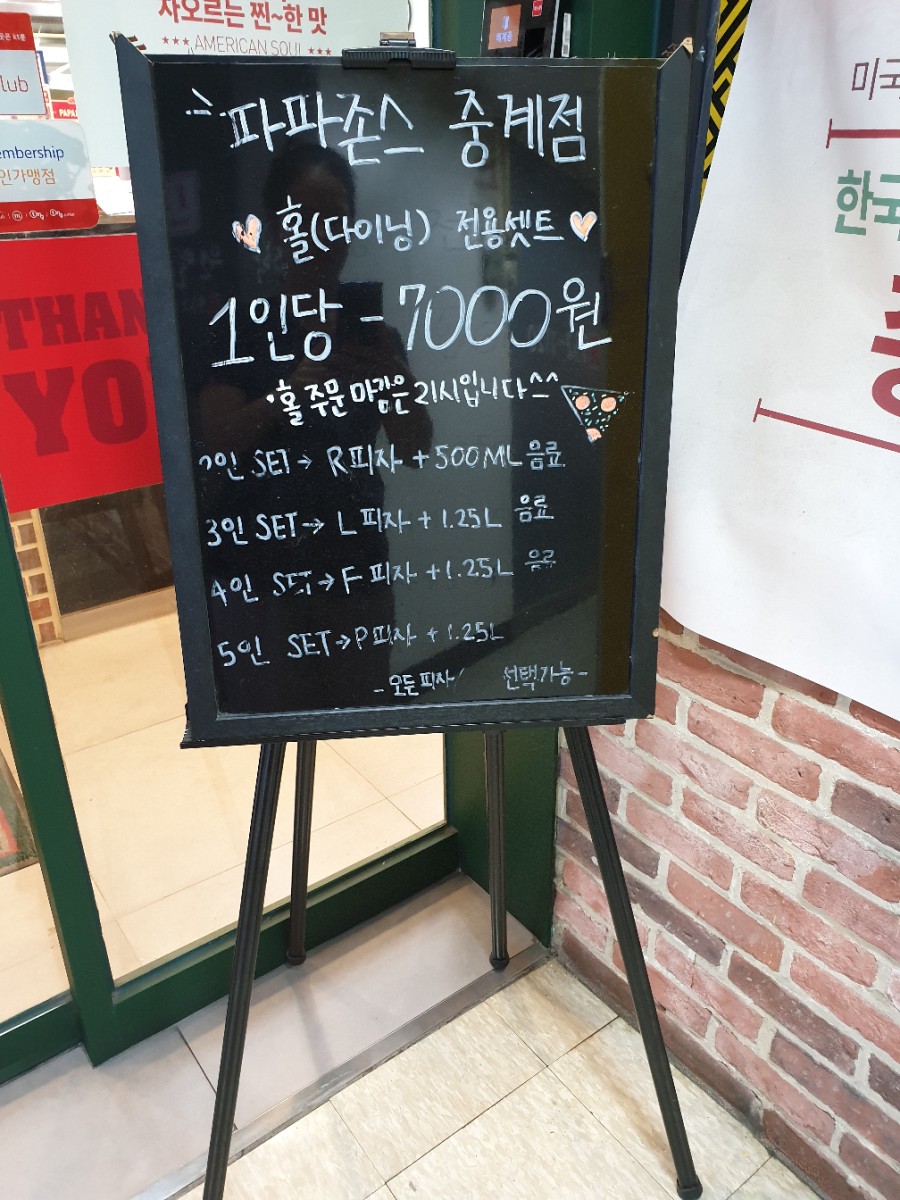 자오르는 찐~한 맛
★★★ AMERICAN SOUL ★★★
lub
embership
인가맹점
THAN
YO
파파존스 중계점
홀(다이닝) 전용셋트
1인당 - 7000원
·홀 주문 마감은 21시입니다^^
2인 SET→ R피자 + 500ML 음료
3인 SET→ L피자 + 1.25L 음료
4인 SET→ F피자 + 1.25L 음료
5인 SET→ P피자 + 1.25L
- 모든피자 선택가능 -
미국
한국